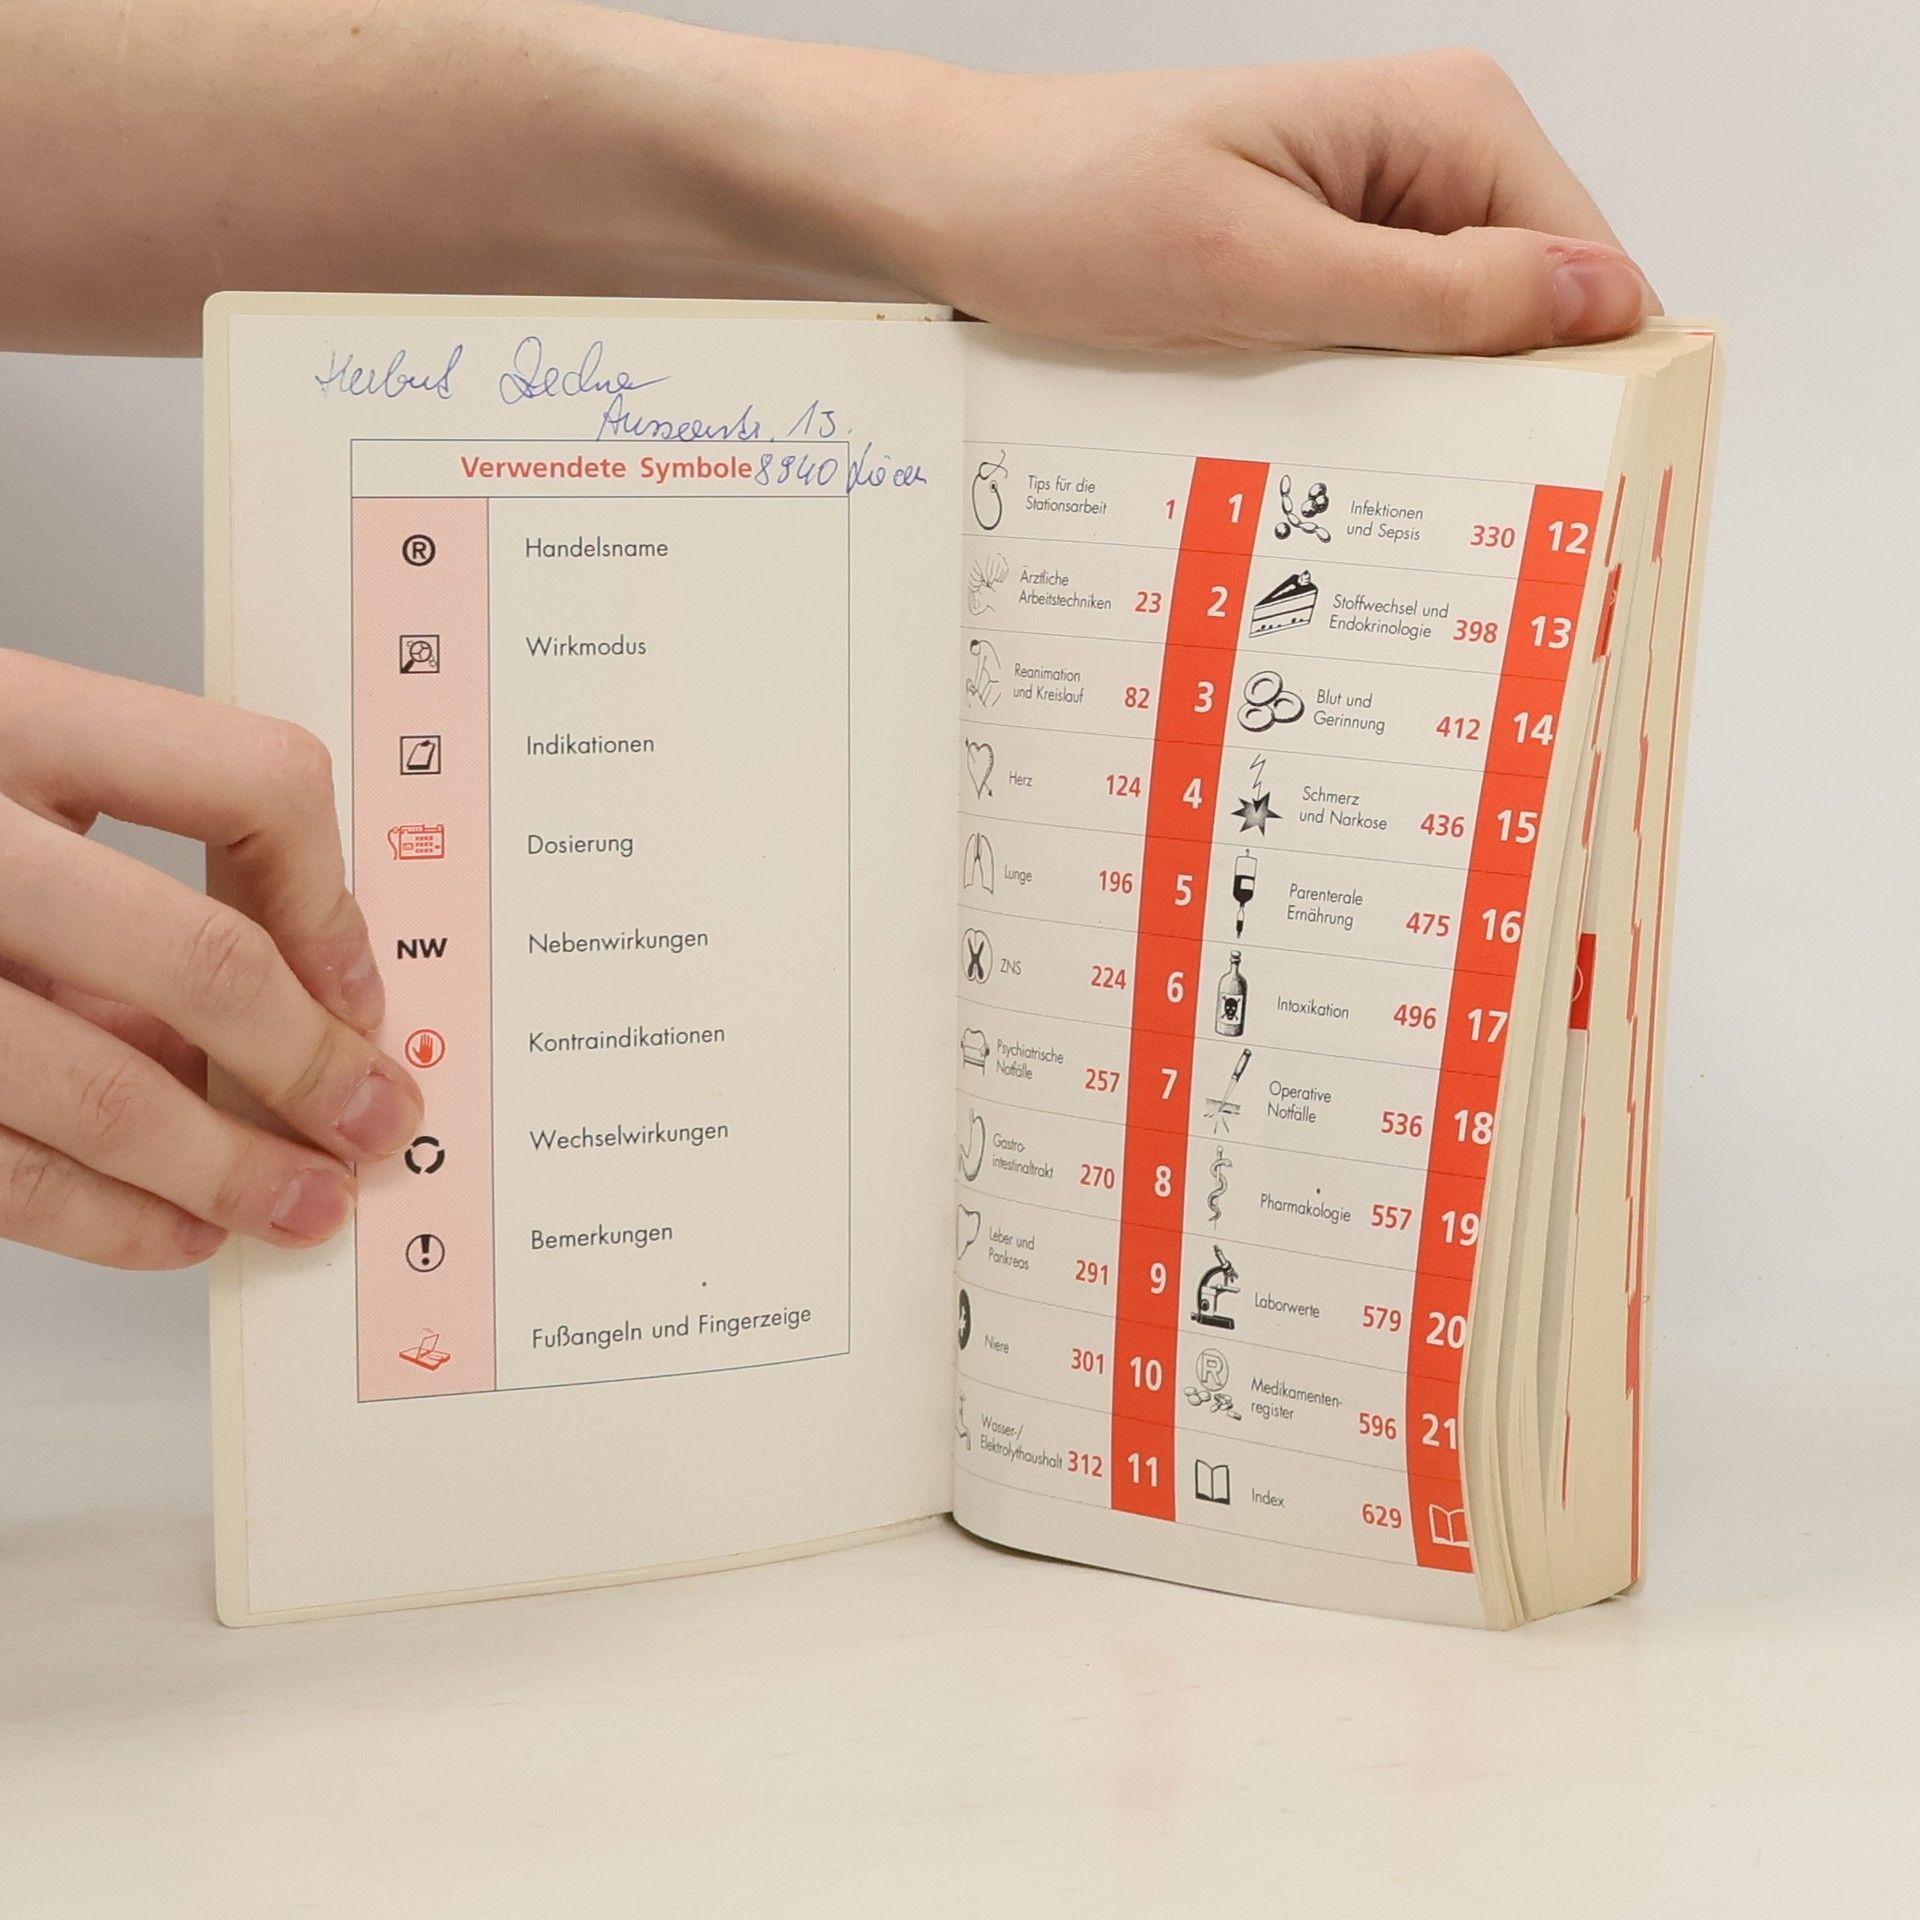 Herbert
13.
Verwendete Symbole 8940
® Handelsname
Wirkmodus
Indikationen
Dosierung
NW Nebenwirkungen
Kontraindikationen
Wechselwirkungen
Bemerkungen
Fußangeln und Fingerzeige
Tips für die
Stationsarbeit 1 1
Ärztliche
Arbeitstechniken 23 2
Reanimation
und Kreislauf 82 3
Herz 124 4
Lunge 196 5
ZNS 224 6
Psychiatrische
Notfälle 257 7
Gastro-
intestinaltrakt 270 8
Leber und
Pankreas 291 9
Niere 301 10
Wasser-/
Elektrolythaushalt 312 11
Infektionen
und Sepsis 330 12
Stoffwechsel und
Endokrinologie 398 13
Blut und
Gerinnung 412 14
Schmerz
und Narkose 436 15
Parenterale
Ernährung 475 16
Intoxikation 496 17
Operative
Notfälle 536 18
Pharmakologie 557 19
Laborwerte 579 20
R
Medikamenten-
register 596 21
Index 629